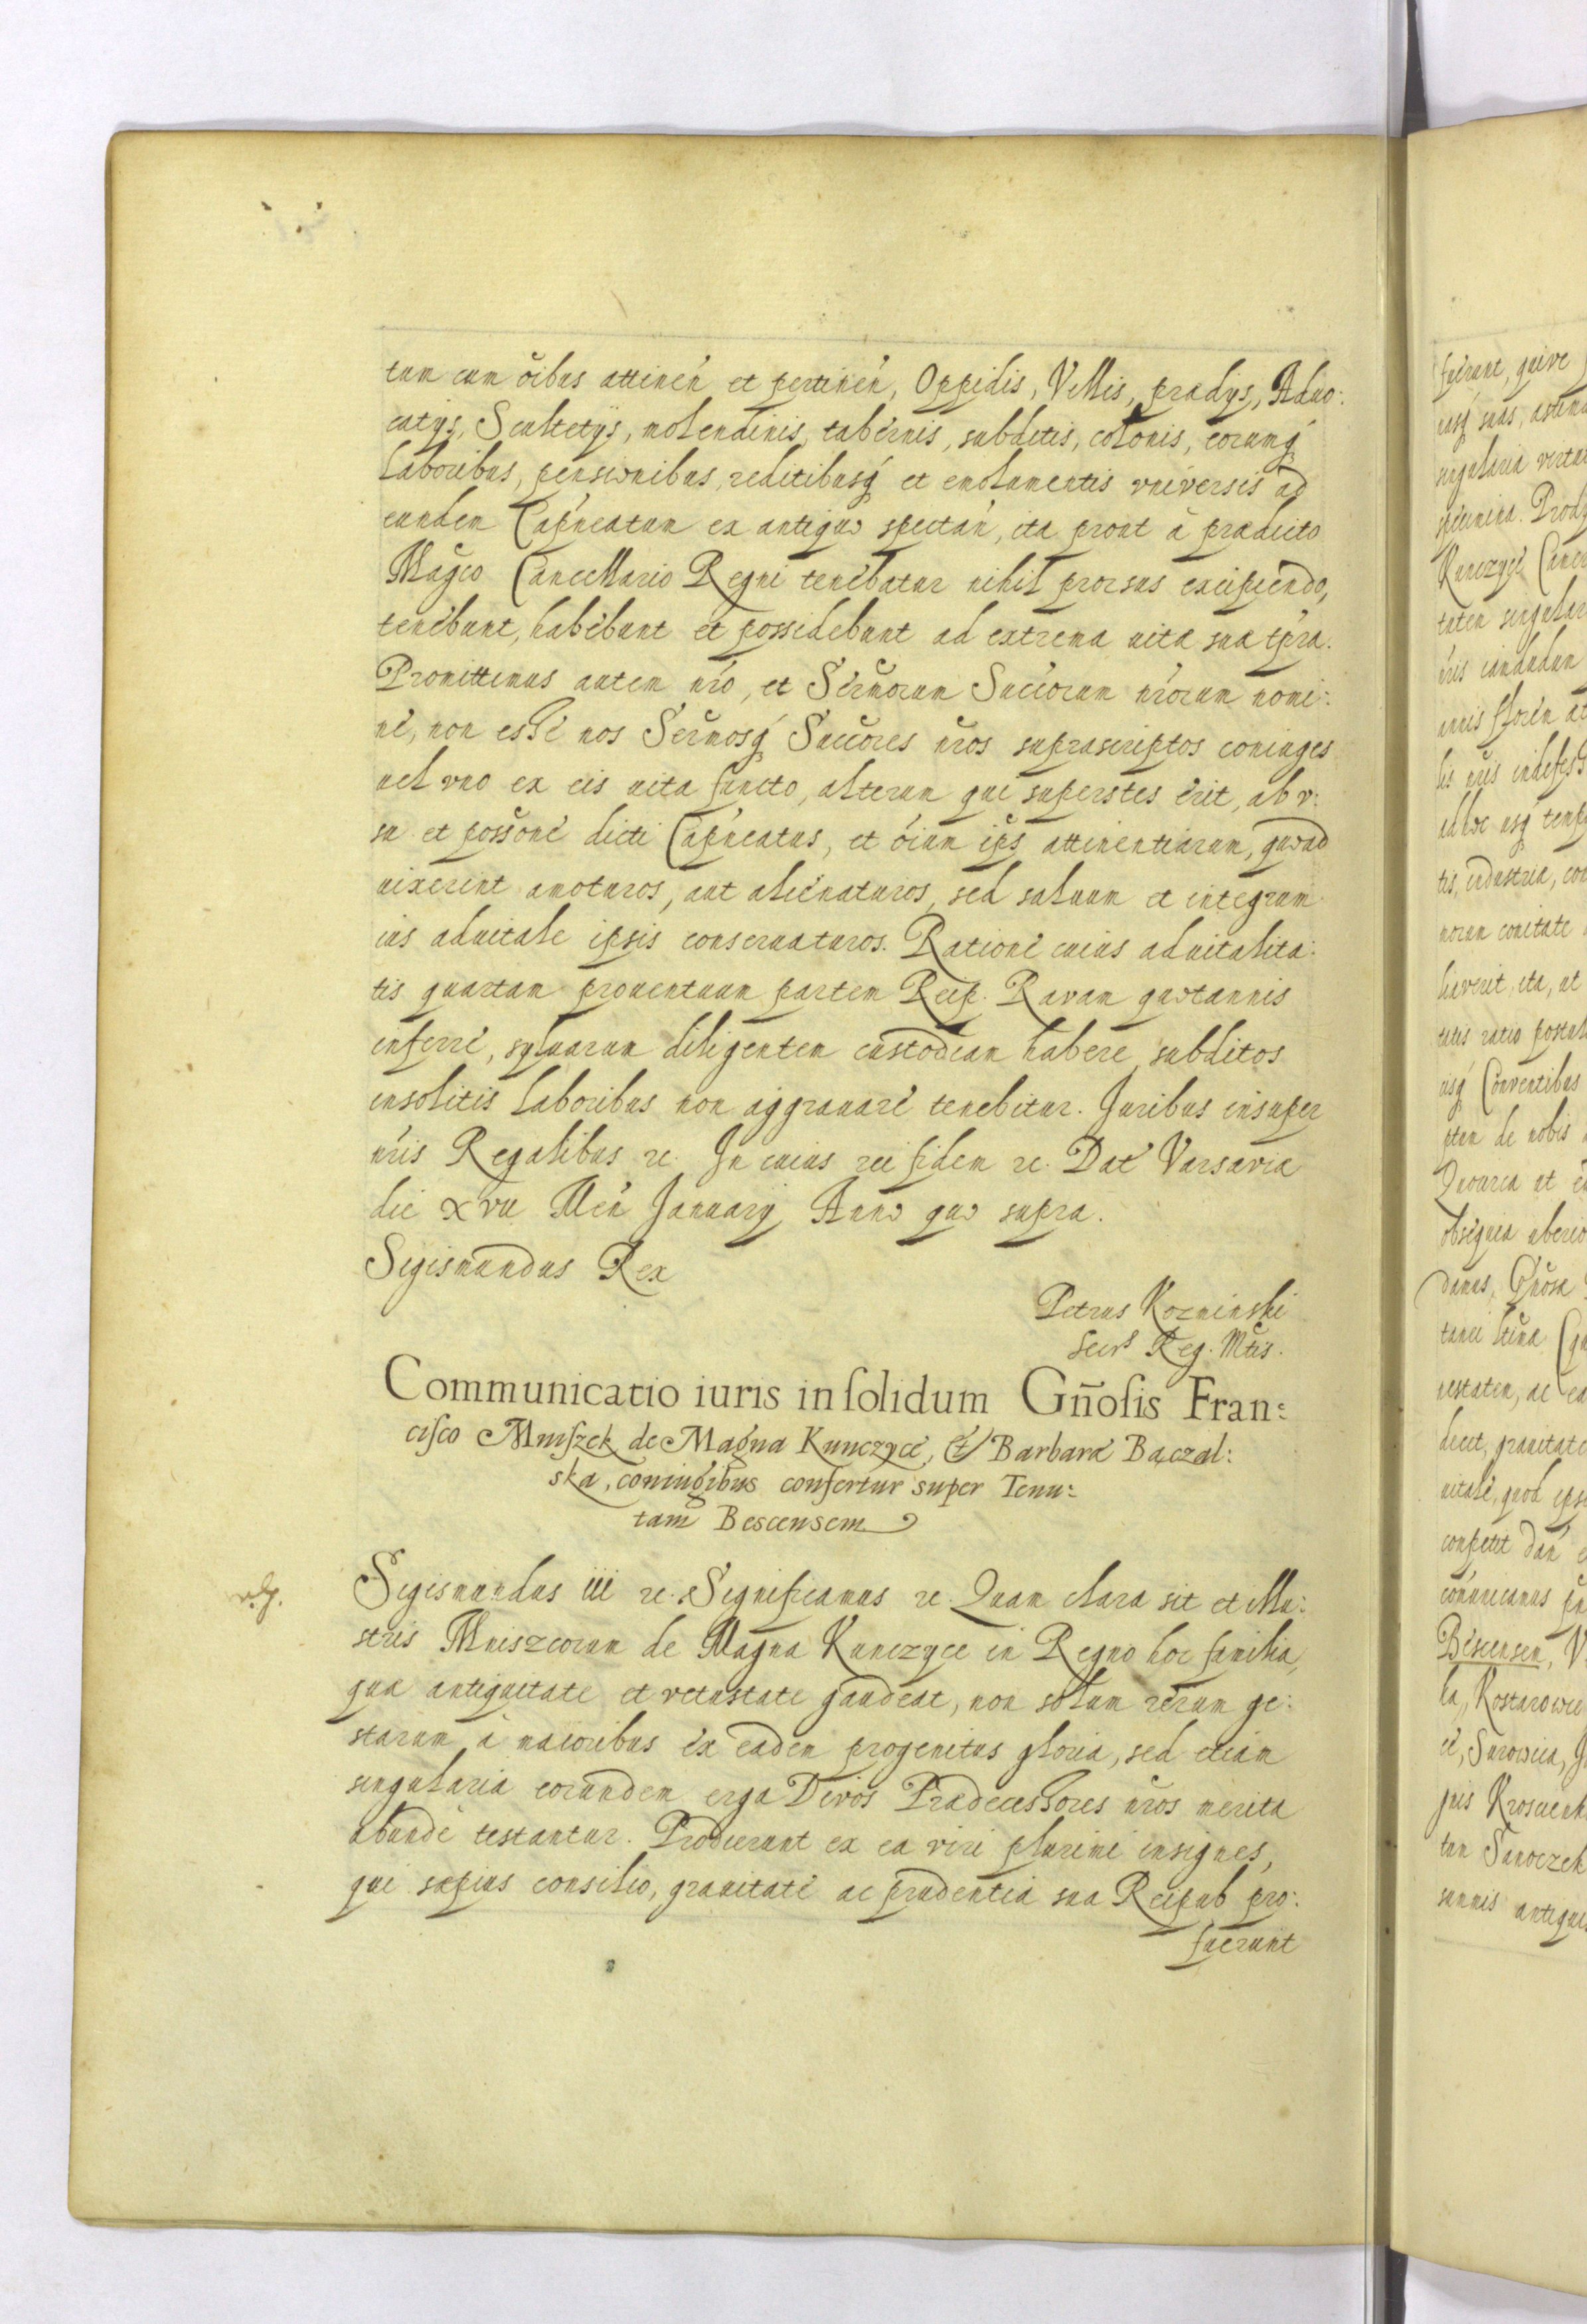 tum cum oibus attinen et pertinen, Oppidis, Villis, prædys, Aduo:
catys, Scultetys, molendinis, tabernis, subditis, colonis, eorumq
laboribus, pensionibus, reditibusq et emolumentis vniversis ad
eundem Capneatum ex antiquo spectan, ita prout à prædicto
Magco Cancellario Regni tenebatur nihil prorsus excipiendo,
tenebunt, habebunt et possidebunt ad extrema uitæ suæ tpra.
Promittimus autem nro, et Sermorum Succorum nrorum nomi:
ne, non esse nos Sermosq Succores nros suprascriptos coniuges
uel vno ex eis uita functo, alterum qui superstes erit, ab v:
su et possone dicti Capneatus, et oium ips attinentiarum, quoad
uixerint amoturos, aut alienaturos, sed saluum et integrum
ius aduitale ipsis conseruaturos. Ratione cuius aduitalita:
tis quartam prouentuum partem Reip. Ravam quotannis
inferre, syluarum diligentem custodiam habere, subditos
insolitis laboribus non aggrauare tenebitur. Juribus insuper
nris Regalibus &c. In cuius rei fidem &c. Dat Varsaviæ
die xvii Men January Anno quo supra.
Sigismundus Rex
Petrus Kozminski
Secrs Reg. Mtis.
Communicatio iuris in solidum Gñosis Fran:
cisco Mniszek de Magna Kunczyce, et Barbaræ Bączal:
ska, coniugibus confertur super Tenu:
tam Bescensem
Sigismundus iii &c. Significamus &c. Quam clara sit et Illu:
stris Mniszcorum de Magna Kunczyce in Regno hoc familia,
qua antiquitate et vetustate gaudeat, non solum rerum ge:
starum à maioribus ex eadem progenitus gloria, sed etiam
singularia eorundem erga Divos Prædecessores nros merita
abundè testantur. Prodierunt ex ea viri plurimi insignes,
qui sæpius consilio, grauitate ac prudentia sua Reipub pro:
fuerunt